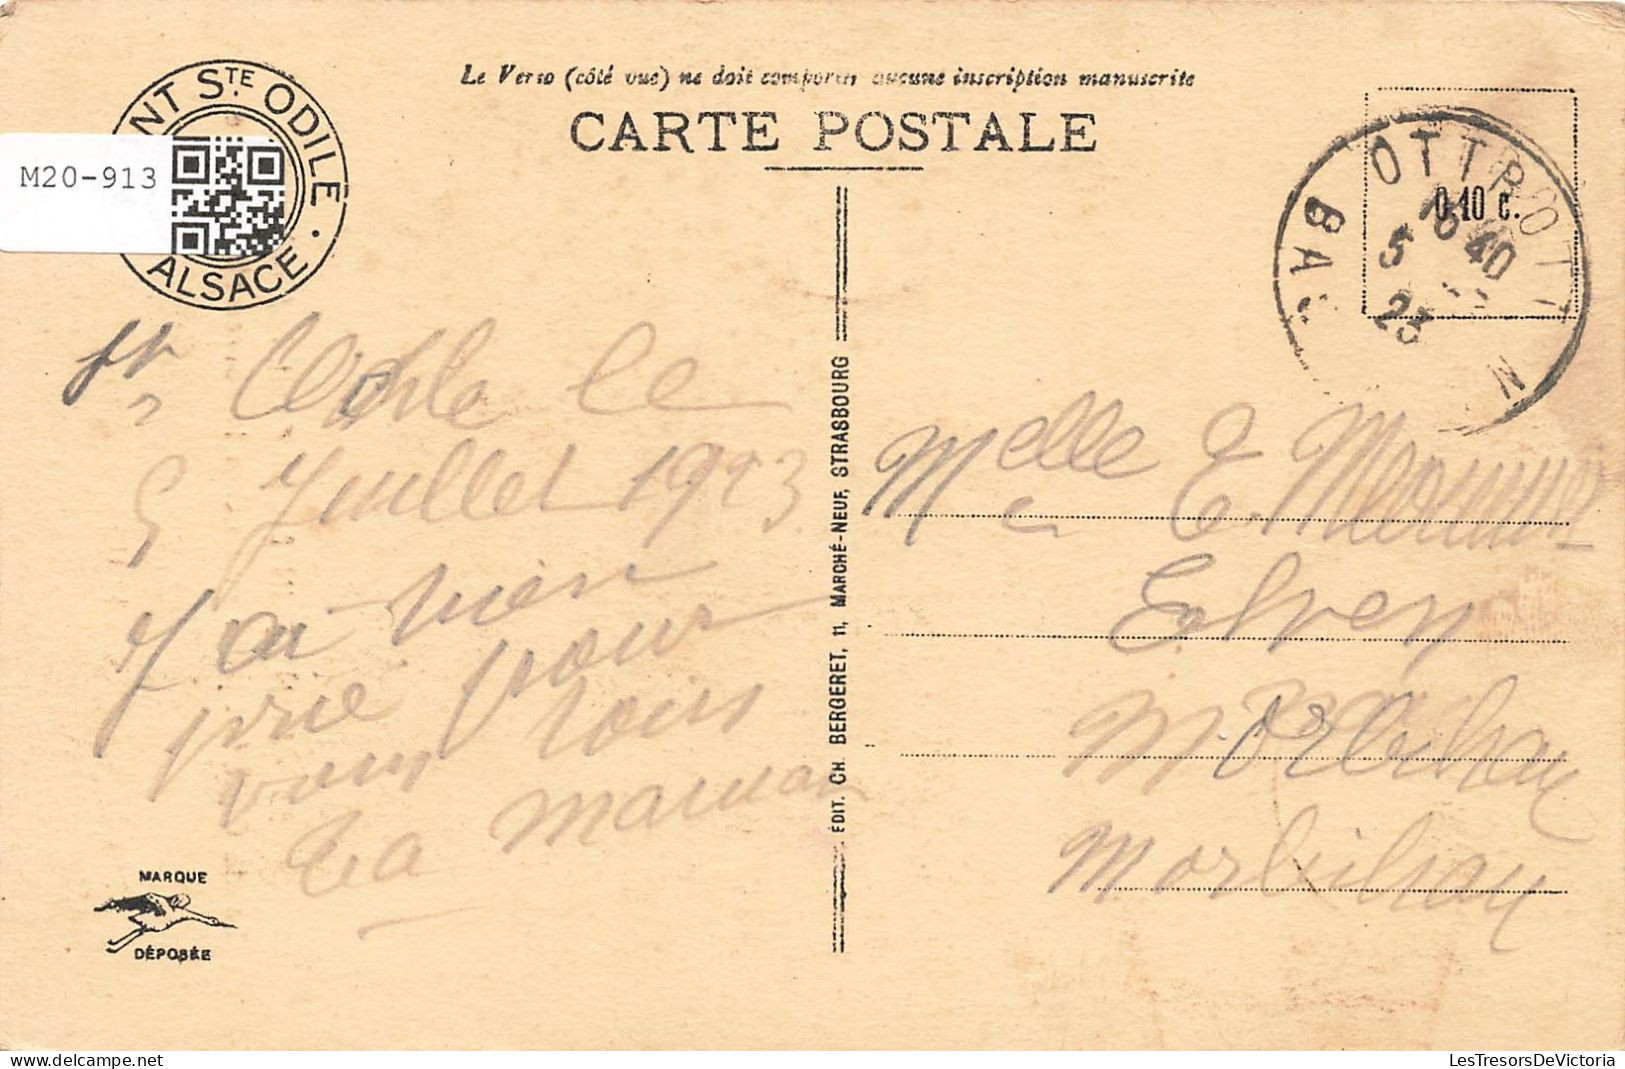 Le Verso (côté vue) ne doit comporter aucune inscription manuscrite
CARTE POSTALE
NT STE ODILE
ALSACE
M20-913
0,10 c.
OTTROTT
BAS N
16 40
5
23
St Odile le
5 Juillet 1923
J'ai bien
prié pour
vous tous
Ta maman
Melle E.
Elven
Morbihan
Morbihan
ÉDIT. CH. BERGERET, 11, MARCHÉ-NEUF, STRASBOURG
MARQUE
DÉPOSÉE
LesTresorsDeVictoria